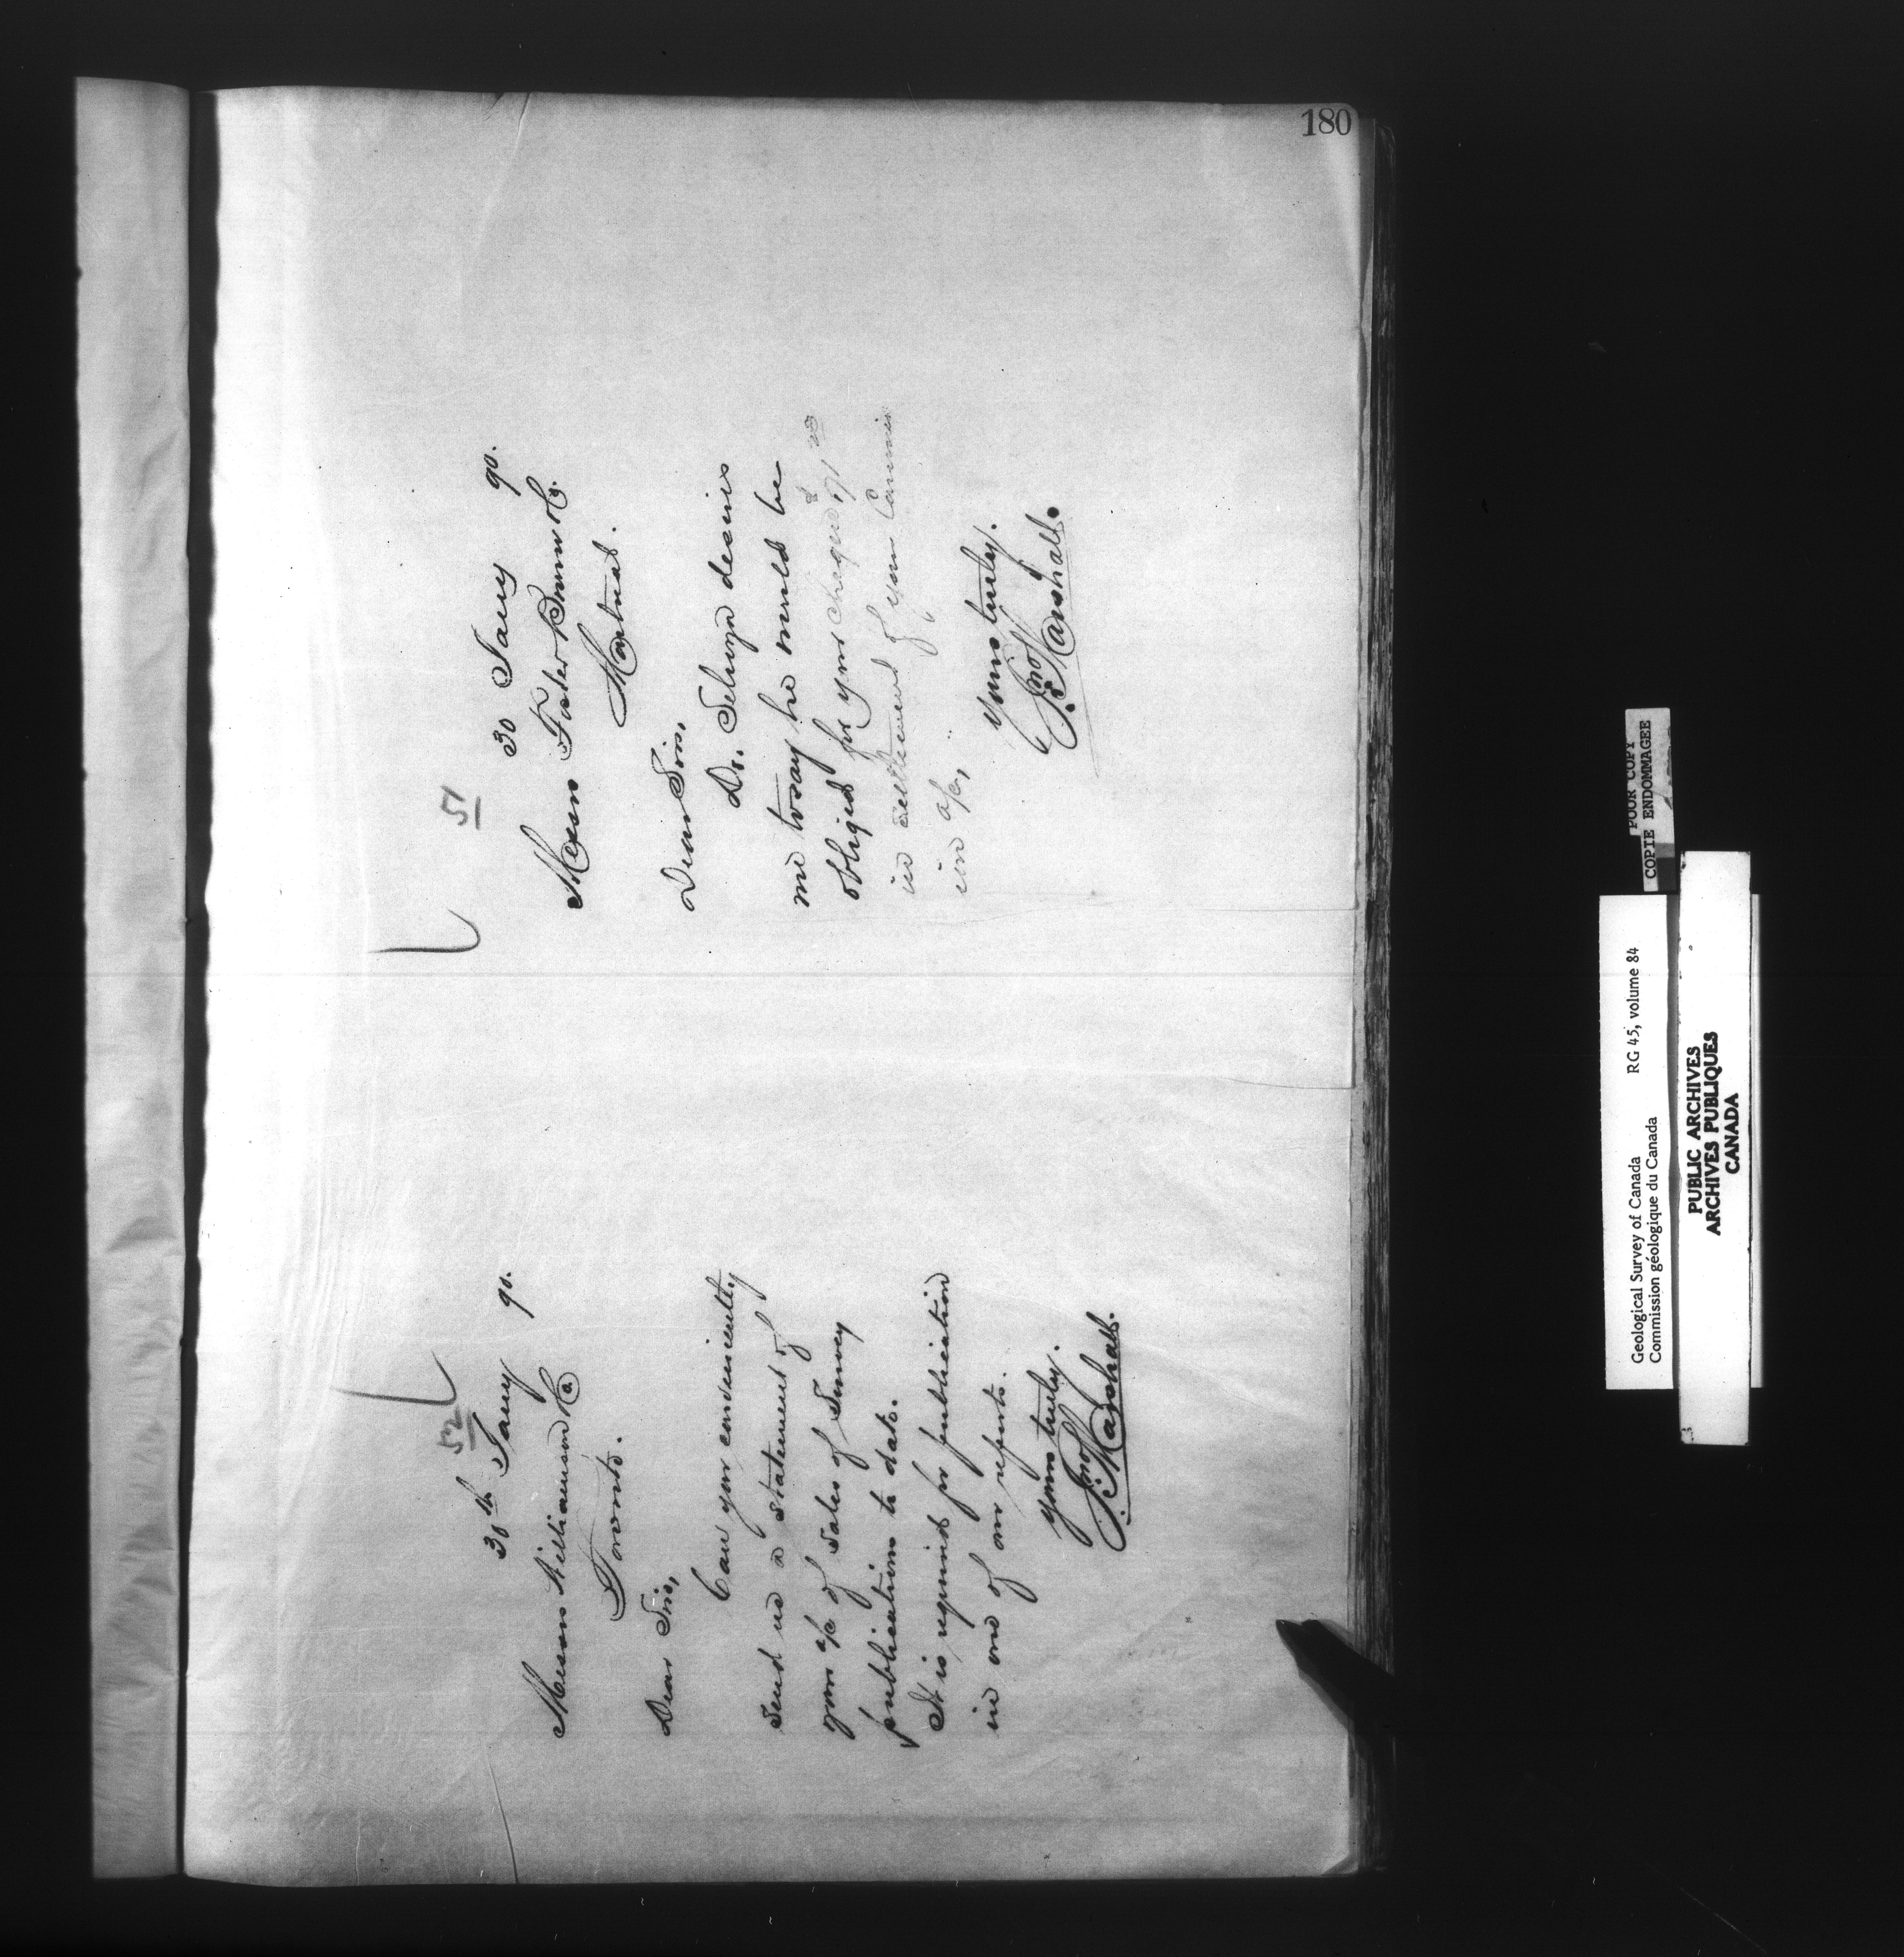 180
51
30 Jany 90.
Messrs Foster Brown & Co.
Montreal.
Dear Sirs,
Dr. Selwyn desires
me to say he would be
obliged for your cheque
in settlement of your Commis
ion a/c,
Yours truly.
Jno Marshall.
52
30th Jany 90.
Messrs Williamson & Co
Toronto.
Dear Sirs,
Can you conveniently
send us a statement of
your a/c of sales of Survey
publications to date.
It is required for publication
in one of our reports.
Yours truly.
Jno Marshall.
POOR COPY
COPIE ENDOMMAGEE
Geological Survey of Canada RG 45, volume 84
Commission géologique du Canada
PUBLIC ARCHIVES
ARCHIVES PUBLIQUES
CANADA